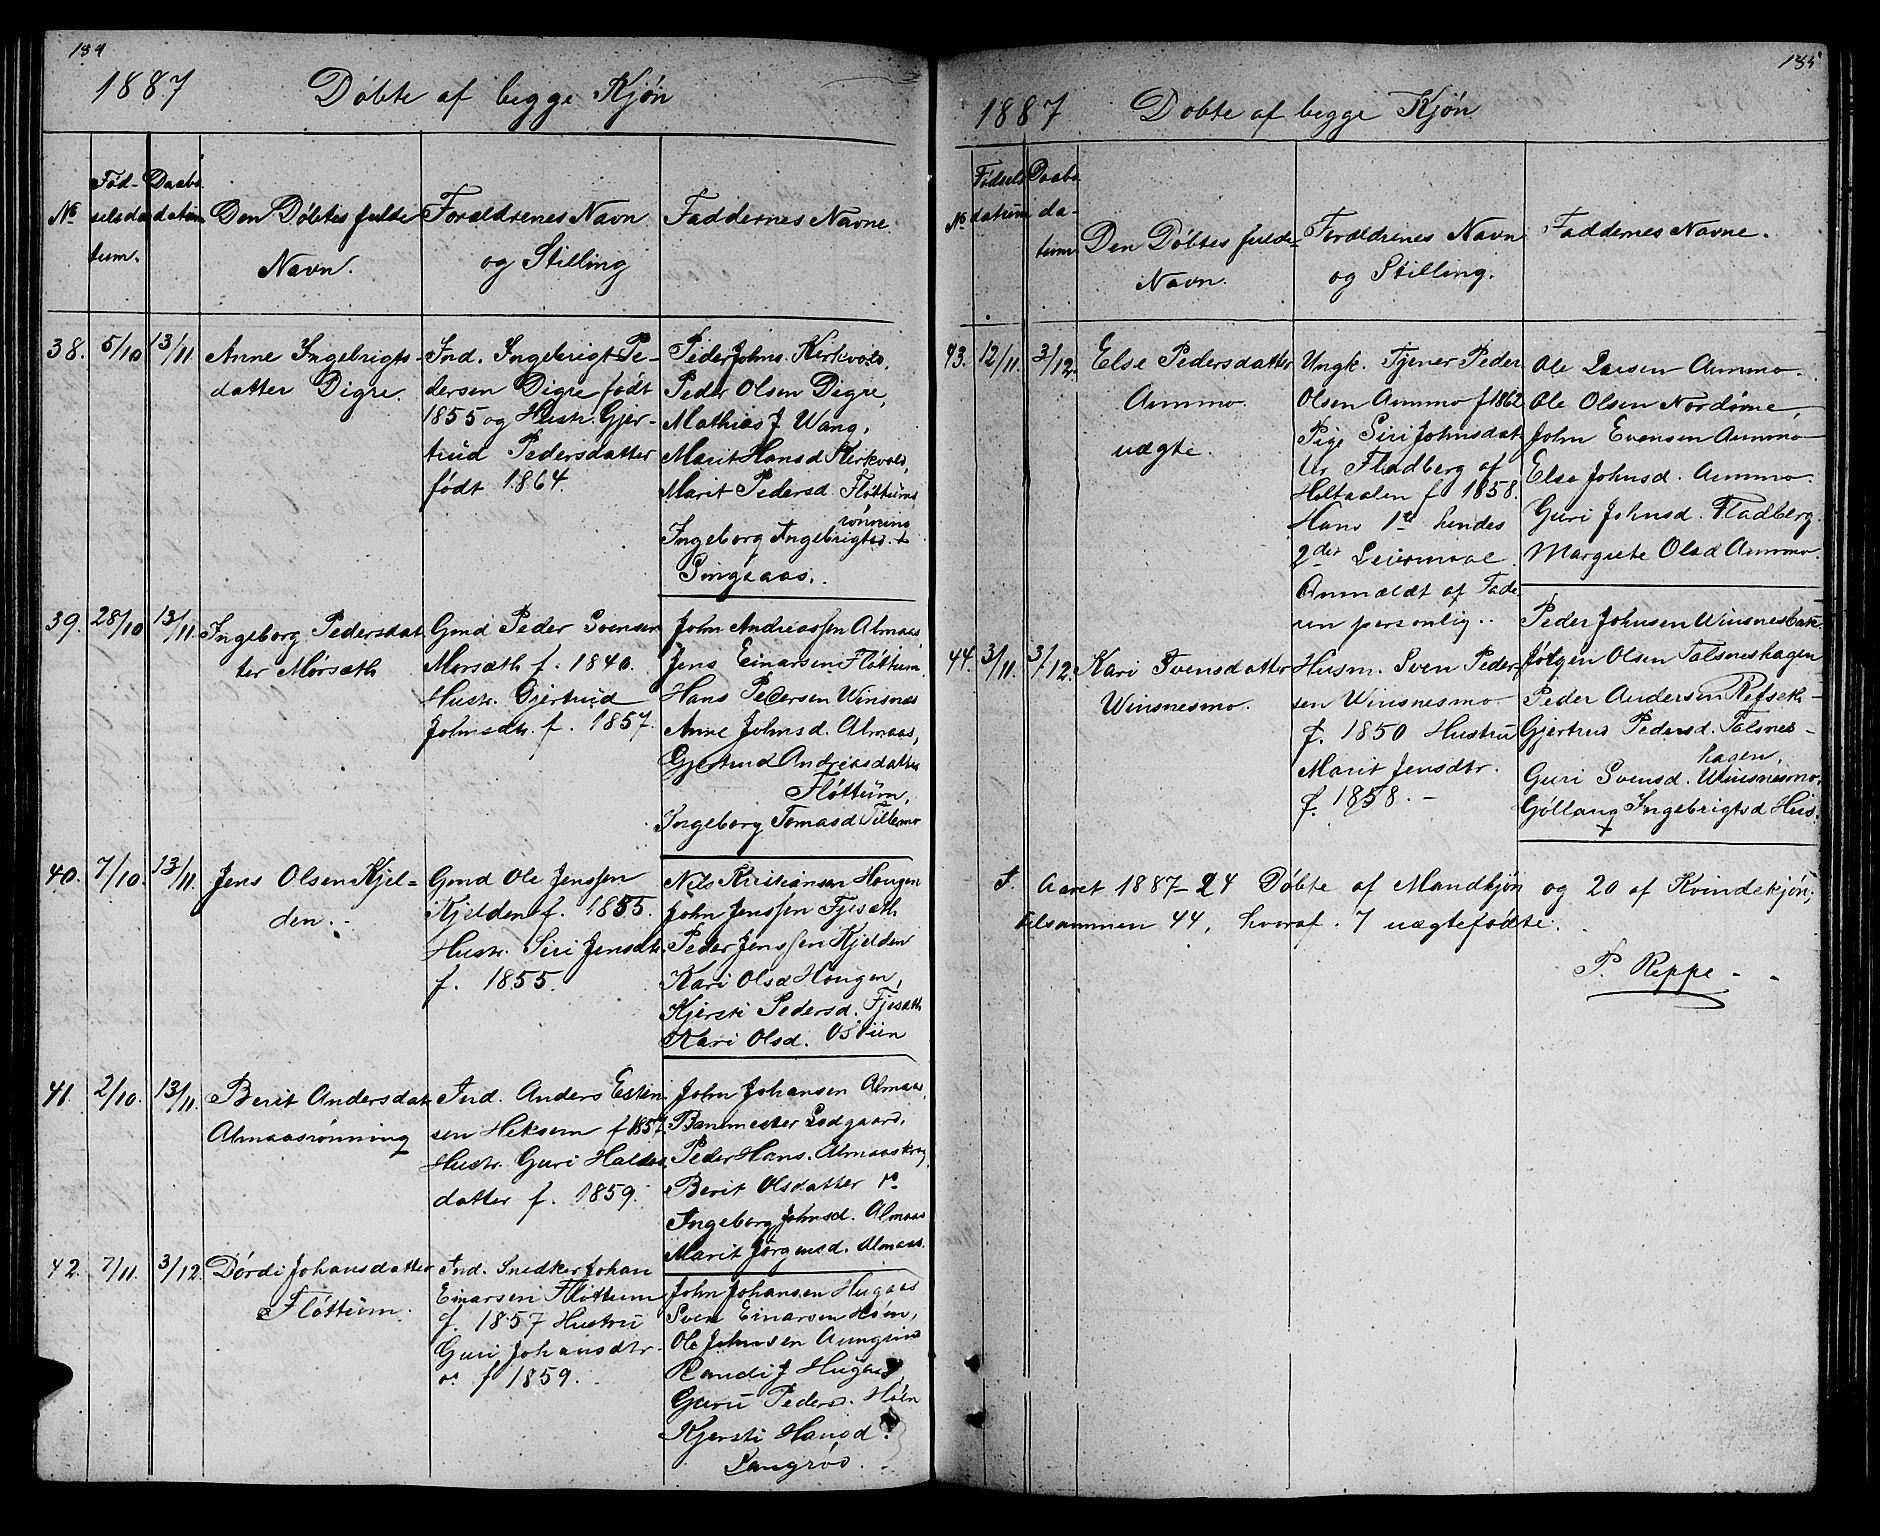 184
1887 Döbte af begge Kjön
No
Fød-
selsda
tum.
Daabs
datum
Den Döbtes fulde
Navn.
Forældrenes Navn
og Stilling
Faddernes Navne
38. 5/10 13/11 Anne Ingebrigts-
datter Digre.
Ind. Ingebrigt Pe-
dersen Digre født
1855 og Hustr. Gjer-
trud Pedersdatter
født 1864.
Peder Johns. Kirkvold,
Peder Olsen Digre,
Mathias J Wang,
Marit Hansd Kirkvold,
Marit Pedersd. Fløttums
rönning
Ingeborg Ingebrigtsd.
Singsaas.
39. 28/10 13/11. Ingeborg Pedersdat
ter Mörsæth
Gmd Peder Svensen
Morsæth f. 1840.
Hustr. Gjertrud
Johnsdtr. f. 1857.
John Andreassen Almaas
Jens Einarsen Flöttum
Hans Pedersen Winsnes
Anne Johnsd. Almaas,
Gjertrud Andreasdatter
Flöttum,
Ingeborg Tomasd Tillermo
40. 7/10. 13/11. Jens Olsen Kjel-
den.
Gmd Ole Jenssen
Kjelden f. 1855.
Hustr. Siri Jensdtr.
f. 1855.
Nils Kristiansen Hougen
John Jenssen Fjesæth
Peder Jenssen Kjelden
Kari Olsd Hougen,
Kjersti Pedersd. Fjesæth
Kari Olsd. Osvien
41. 2/10. 13/11. Berit Andersdat
Almaasrönning
Ind. Anders Esten
sen Heksem f 1857
Hustr. Guri Haldos
datter f. 1859.
John Johansen Almaas,
Banmester Lodgaard,
Peder Hans. Almaaskrog
Berit Olsdatter
Ingeborg Johnsd. Almaas
Marit Jörgensd. Almaas.
42. 7/11. 3/12. Dördi Johansdatter
Flöttum.
Ind. Snedker Johan
Einarsen Flöttum
f. 1857 Hustru
Guri Johansdtr
f 1859.
John Johansen Hugaas
Sven Einarsen Höen,
Ole Johnsen Aungrind
Randi J Hugaas,
Guru Peders. Höen
Kjersti Hansd.
Langröd.
185
1887 Döbte af begge Kjön
No
Födsels
datum
Daabs
da-
tum
Den Döbtes fulde
Navn.
Forældrenes Navn
og Stilling.
Faddernes Navne.
43. 12/11. 3/12. Else Pedersdatter
Aunmo.
uægte.
Ungk. Tjener Peder
Olsen Aunmo f 1862
Pige Siri Johnsdat
ter Fladberg af
Holtaalen f 1858.
Hans 1te hendes
2det Leiermaal.
Anmeldt af Fade
ren personlig.
Ole Larsen Aunmo.
Ole Olsen Nordöine,
John Evensen Aunmo
Else Johnsd. Aunmo.
Guri Johnsd. Fladberg.
Margrete Olsd Aunmo.
44. 3/11. 3/12. Kari Svensdatter
Winsnesmo.
Husm. Sven Peder-
sen Winsnesmo.
f. 1850 Hustru
Marit Jensdtr.
f. 1858.
Peder Johnsen Winsnesbak.
Jörgen Olsen Talsneshagen
Peder Andersen Refsek-
Gjertrud Pedersd. Talsnes-
hagen,
Guri Svensd. Winsnesmo,
Göllaug Ingebrigtsd Hus.
I. Aaret 1887 - 24 Döbte af Mandkjön og 20 af Kvindekjön;
tilsammen 44, hvoraf 7 uægtefødte.
P. Reppe